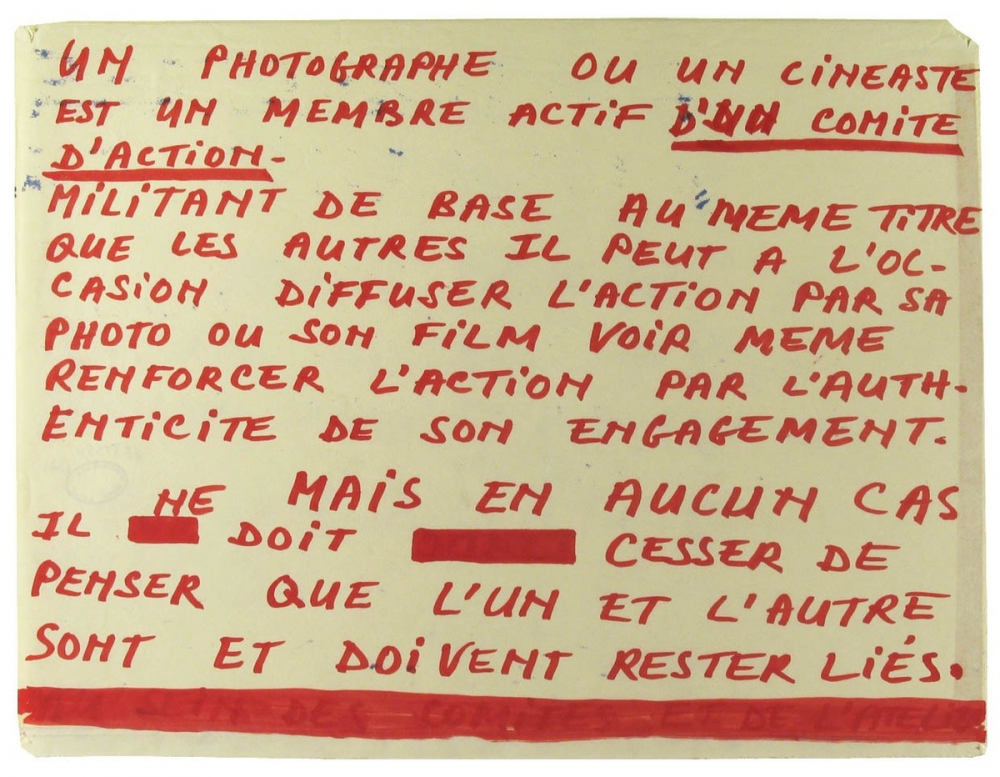 UN PHOTOGRAPHE OU UN CINEASTE
EST UN MEMBRE ACTIF D'UN COMITE
D'ACTION-
MILITANT DE BASE AU MEME TITRE
QUE LES AUTRES IL PEUT A L'OC-
CASION DIFFUSER L'ACTION PAR SA
PHOTO OU SON FILM VOIR MEME
RENFORCER L'ACTION PAR L'AUTH-
ENTICITE DE SON ENGAGEMENT.
MAIS EN AUCUN CAS
IL NE DOIT CESSER DE
PENSER QUE L'UN ET L'AUTRE
SONT ET DOIVENT RESTER LIÉS.
DES COMITES ET DE L'ATELIER